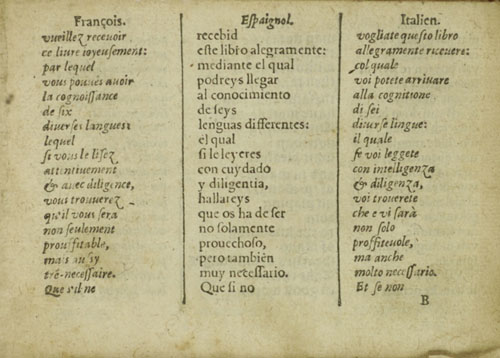 François.
vueillez receuoir
ce liure ioyeusement:
par lequel
vous pouués auoir
la cognoissance
de six
diuerses langues:
lequel
si vous le lisez
attentiuement
& auec diligence,
vous trouuerez
qu'il vous sera
non seulement
prouffitable,
mais aussy
tré-necessaire.
Que s'il no
Espaignol.
recebid
este libro alegramente:
mediante el qual
podreys llegar
al conocimiento
de seys
lenguas differentes:
el qual
si le leyeres
con cuydado
y diligentia,
hallareys
que os ha de ser
no solamente
prouechoso,
pero también
muy necessario.
Que si no
Italien.
vogliate questo libro
allegramente riceuere:
col quale
voi potete arriuare
alla cognitione
di sei
diuerse lingue:
il quale
se voi leggete
con intelligenza
& diligenza,
voi trouerete
che e vi sarà
non solo
proffiteuole,
ma anche
molto necessario.
Et se non
B